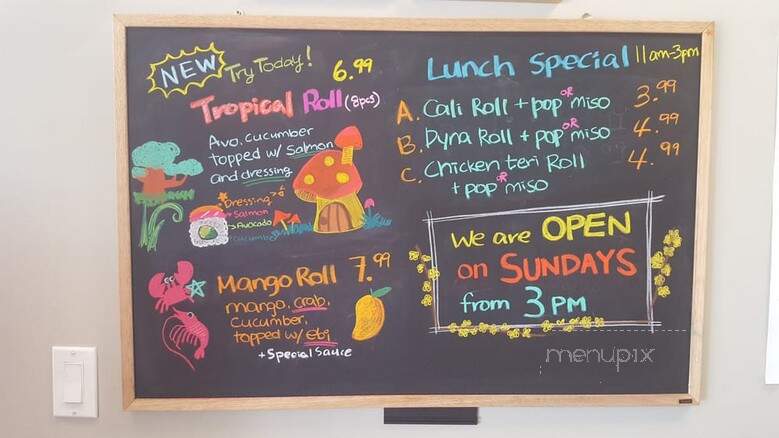 NEW Try Today! 6.99
Tropical Roll (8pcs)
Avo. cucumber
topped w/ Salmon
and dressing
Dressing
Salmon
Avocado
Cucumber
Mango Roll 7.99
mango, crab,
cucumber,
topped w/ ebi
+ Special Sauce
Lunch Special 11am-3pm
A. Cali Roll + pop OR miso 3.99
B. Dyna Roll + pop OR miso 4.99
C. Chicken teri Roll 4.99
+ pop OR miso
We are OPEN
on SUNDAYS
from 3 PM
menupix